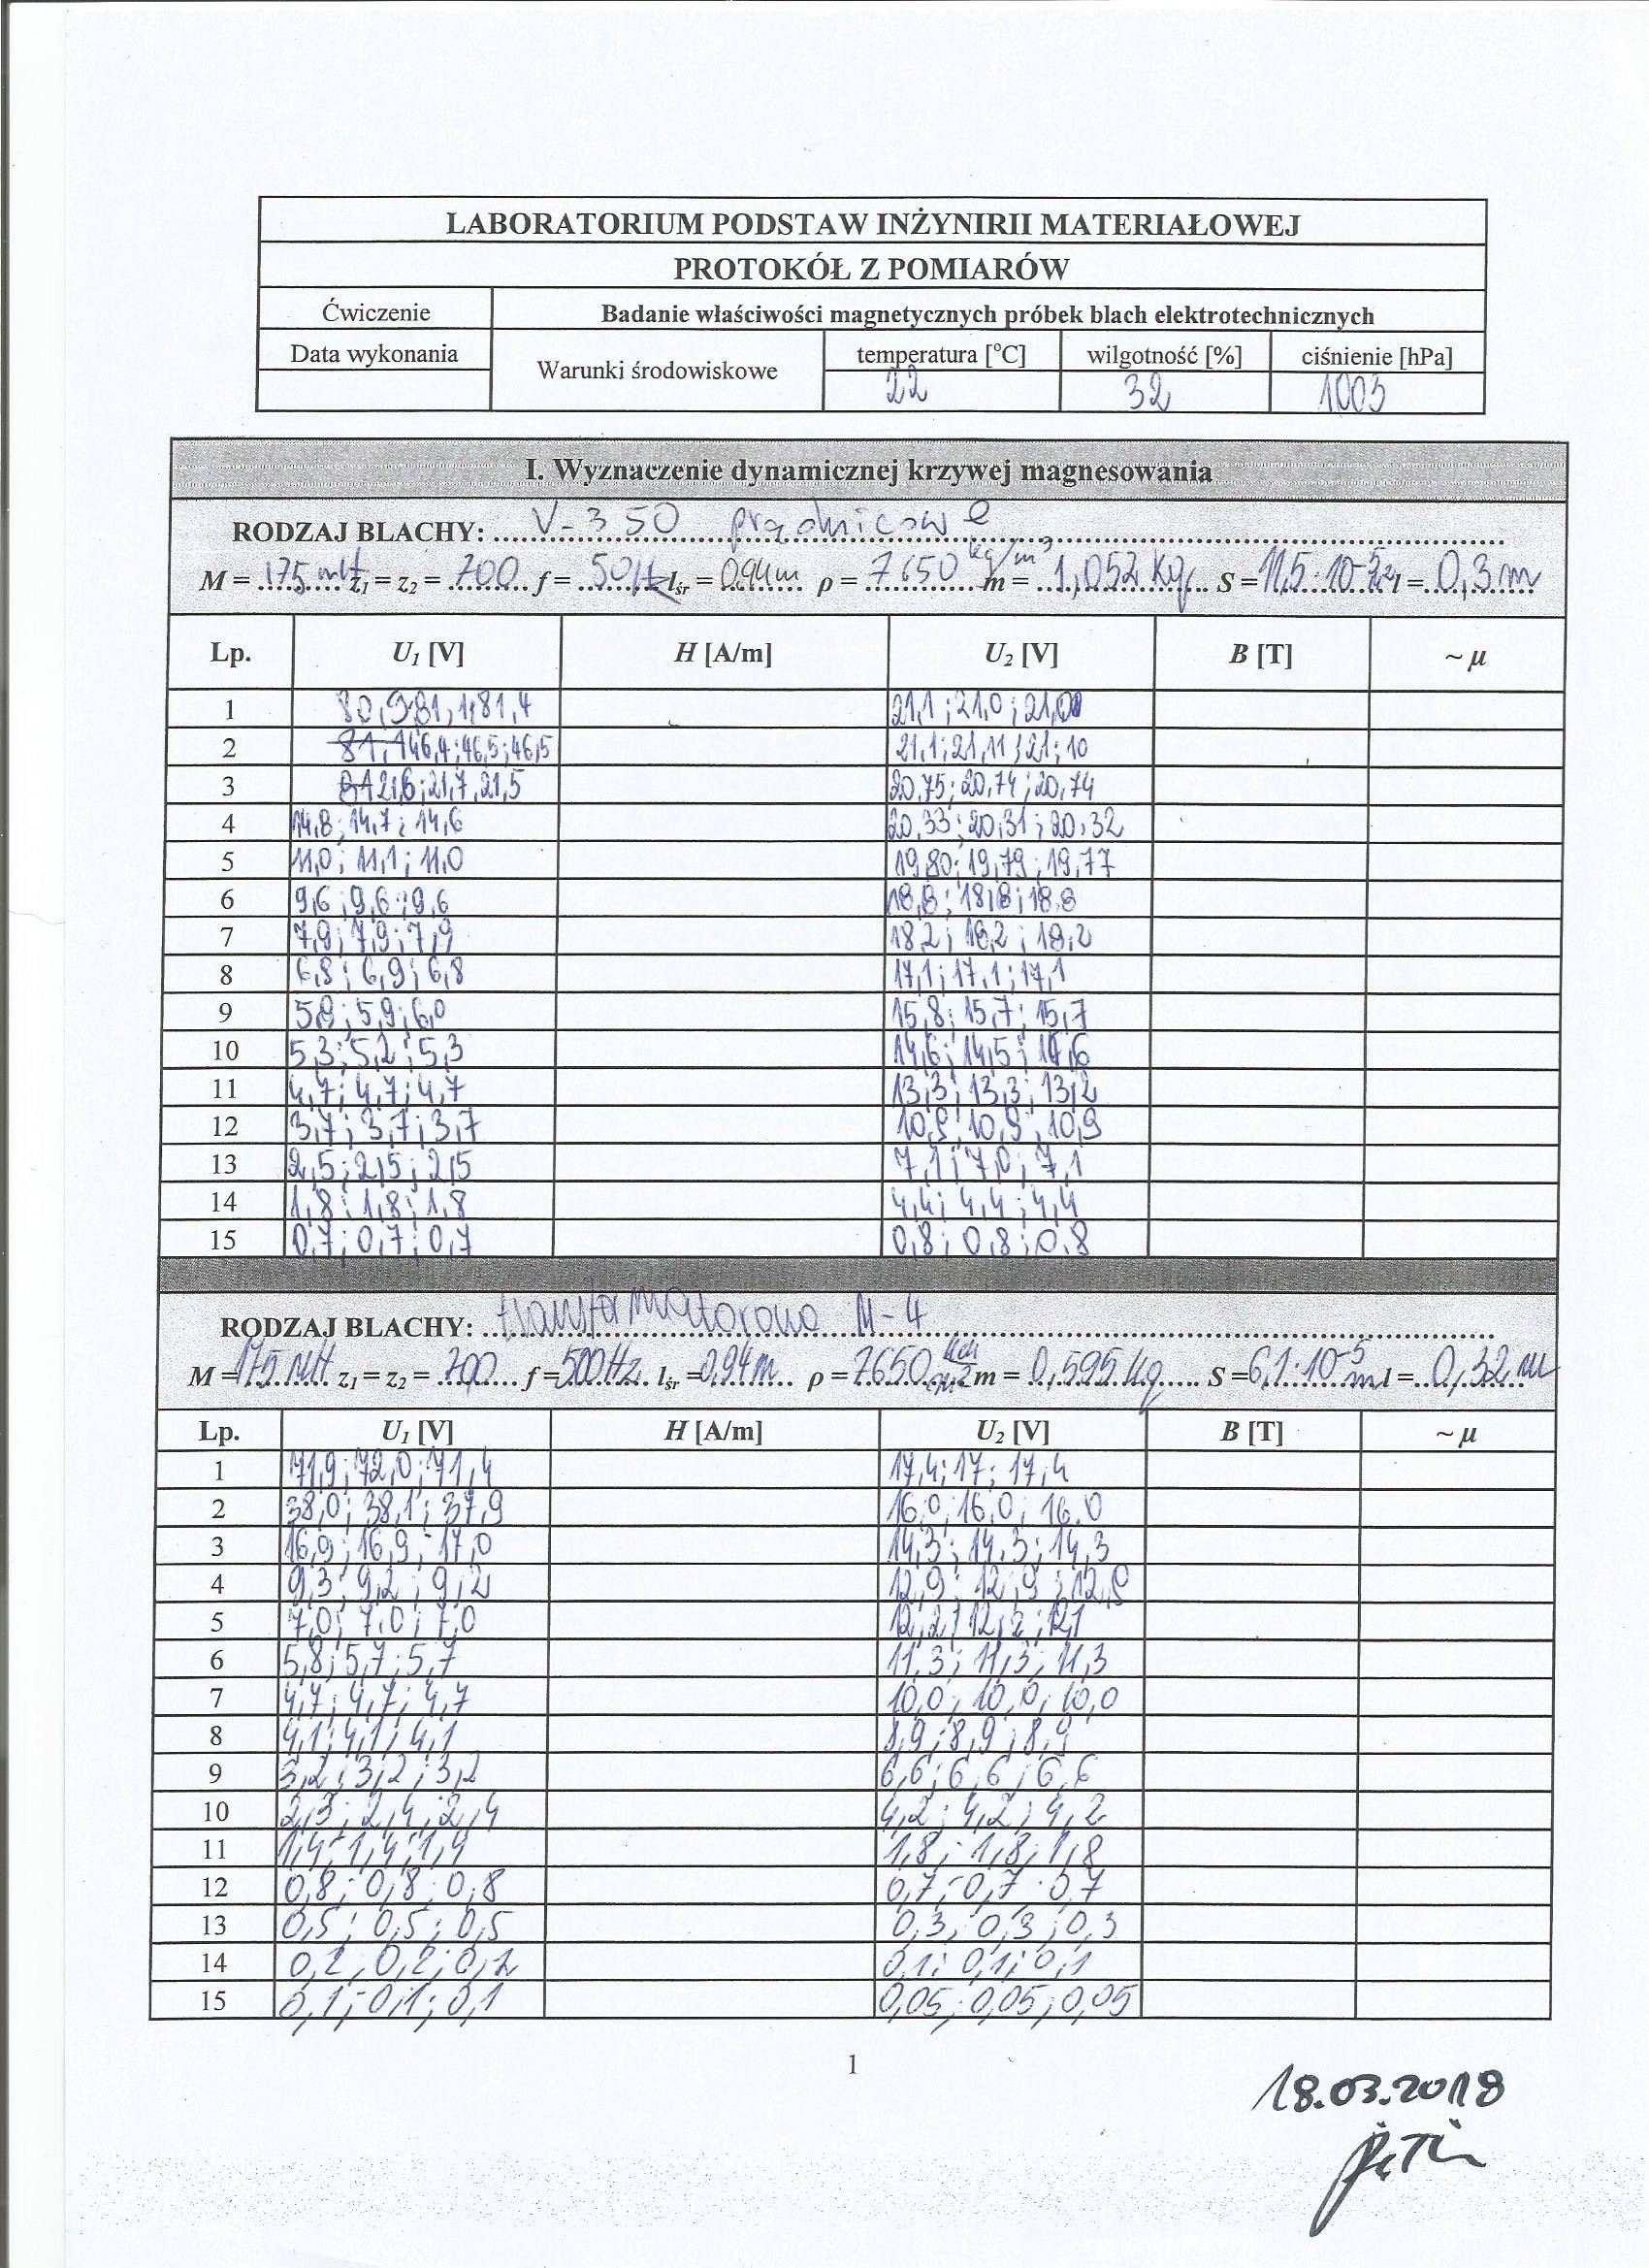 LABORATORIUM PODSTAW INŻYNIRII MATERIAŁOWEJ
PROTOKÓŁ Z POMIARÓW
Ćwiczenie Badanie właściwości magnetycznych próbek blach elektrotechnicznych
Data wykonania Warunki środowiskowe temperatura [°C] wilgotność [%] ciśnienie [hPa]
22 32 1003
I. Wyznaczenie dynamicznej krzywej magnesowania
RODZAJ BLACHY: V-350 prądnicowe
M = 175 mH z1 = z2 = 700 f = 50Hz lśr = 0,94m ρ = 7650 kg/m³ m = 1,052 kg S = 11,5·10⁻⁵ l = 0,3m
Lp. U1 [V] H [A/m] U2 [V] B [T] ~ μ
1 80,9 81,1; 81,4 21,1; 21,0; 21,0
2 46,4; 46,5; 46,5 21,1; 21,11; 21,10
3 21,6; 21,7; 21,5 20,75; 20,74; 20,74
4 14,8; 14,7; 14,6 20,33; 20,31; 20,32
5 11,0; 11,1; 11,0 19,80; 19,79; 19,77
6 9,6; 9,6; 9,6 18,8; 18,8; 18,8
7 7,9; 7,9; 7,9 18,2; 18,2; 18,2
8 6,8; 6,9; 6,8 17,1; 17,1; 17,1
9 5,8; 5,9; 6,0 15,8; 15,7; 15,7
10 5,3; 5,2; 5,3 14,6; 14,5; 14,6
11 4,7; 4,7; 4,7 13,3; 13,3; 13,2
12 3,7; 3,7; 3,7 10,9; 10,9; 10,9
13 2,5; 2,5; 2,5 7,1; 7,0; 7,1
14 1,8; 1,8; 1,8 4,4; 4,4; 4,4
15 0,7; 0,7; 0,7 0,8; 0,8; 0,8
RODZAJ BLACHY: transformatorowa M-4
M = 175 mH z1 = z2 = 700 f = 500Hz lśr = 0,94m ρ = 7650 m = 0,595 kg S = 6,1·10⁻⁵ l = 0,32 m
Lp. U1 [V] H [A/m] U2 [V] B [T] ~ μ
1 71,9; 72,0; 71,4 17,4; 17; 17,4
2 38,0; 38,1; 37,9 16,0; 16,0; 16,0
3 16,9; 16,9; 17,0 14,3; 14,3; 14,3
4 9,3; 9,2; 9,2 12,9; 12,9; 12,9
5 7,0; 7,0; 7,0 12,2; 12,2; 12,1
6 5,8; 5,7; 5,7 11,3; 11,3; 11,3
7 4,7; 4,7; 4,7 10,0; 10,0; 10,0
8 4,1; 4,1; 4,1 8,9; 8,9; 8,9
9 3,2; 3,2; 3,2 6,6; 6,6; 6,6
10 2,3; 2,4; 2,4 4,2; 4,2; 4,2
11 1,4; 1,4; 1,4 1,8; 1,8; 1,8
12 0,8; 0,8; 0,8 0,7; 0,7; 0,7
13 0,5; 0,5; 0,5 0,3; 0,3; 0,3
14 0,2; 0,2; 0,2 0,1; 0,1; 0,1
15 0,1; 0,1; 0,1 0,05; 0,05; 0,05
1
18.03.2018